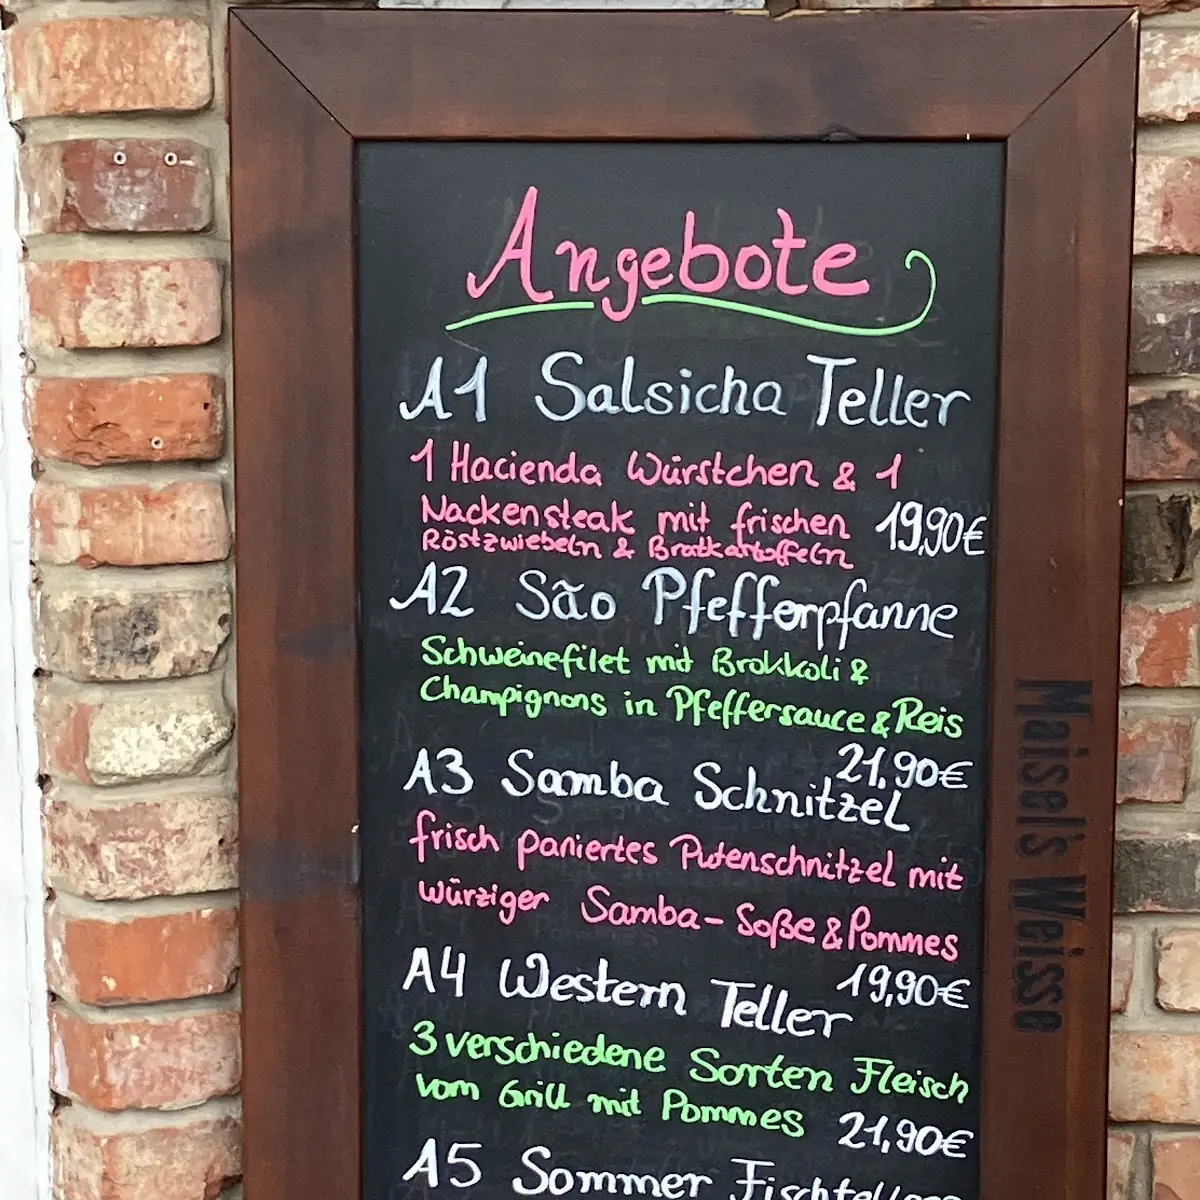 Angebote
A1 Salsicha Teller
1 Hacienda Würstchen & 1
Nackensteak mit frischen 19,90€
Röstzwiebeln & Bratkartoffeln
A2 São Pfefferpfanne
Schweinefilet mit Brokkoli &
Champignons in Pfeffersauce & Reis
21,90€
A3 Samba Schnitzel
frisch paniertes Putenschnitzel mit
würziger Samba-Soße & Pommes
19,90€
A4 Western Teller
3 verschiedene Sorten Fleisch
vom Grill mit Pommes 21,90€
A5 Sommer Fischteller
Maisel's Weisse